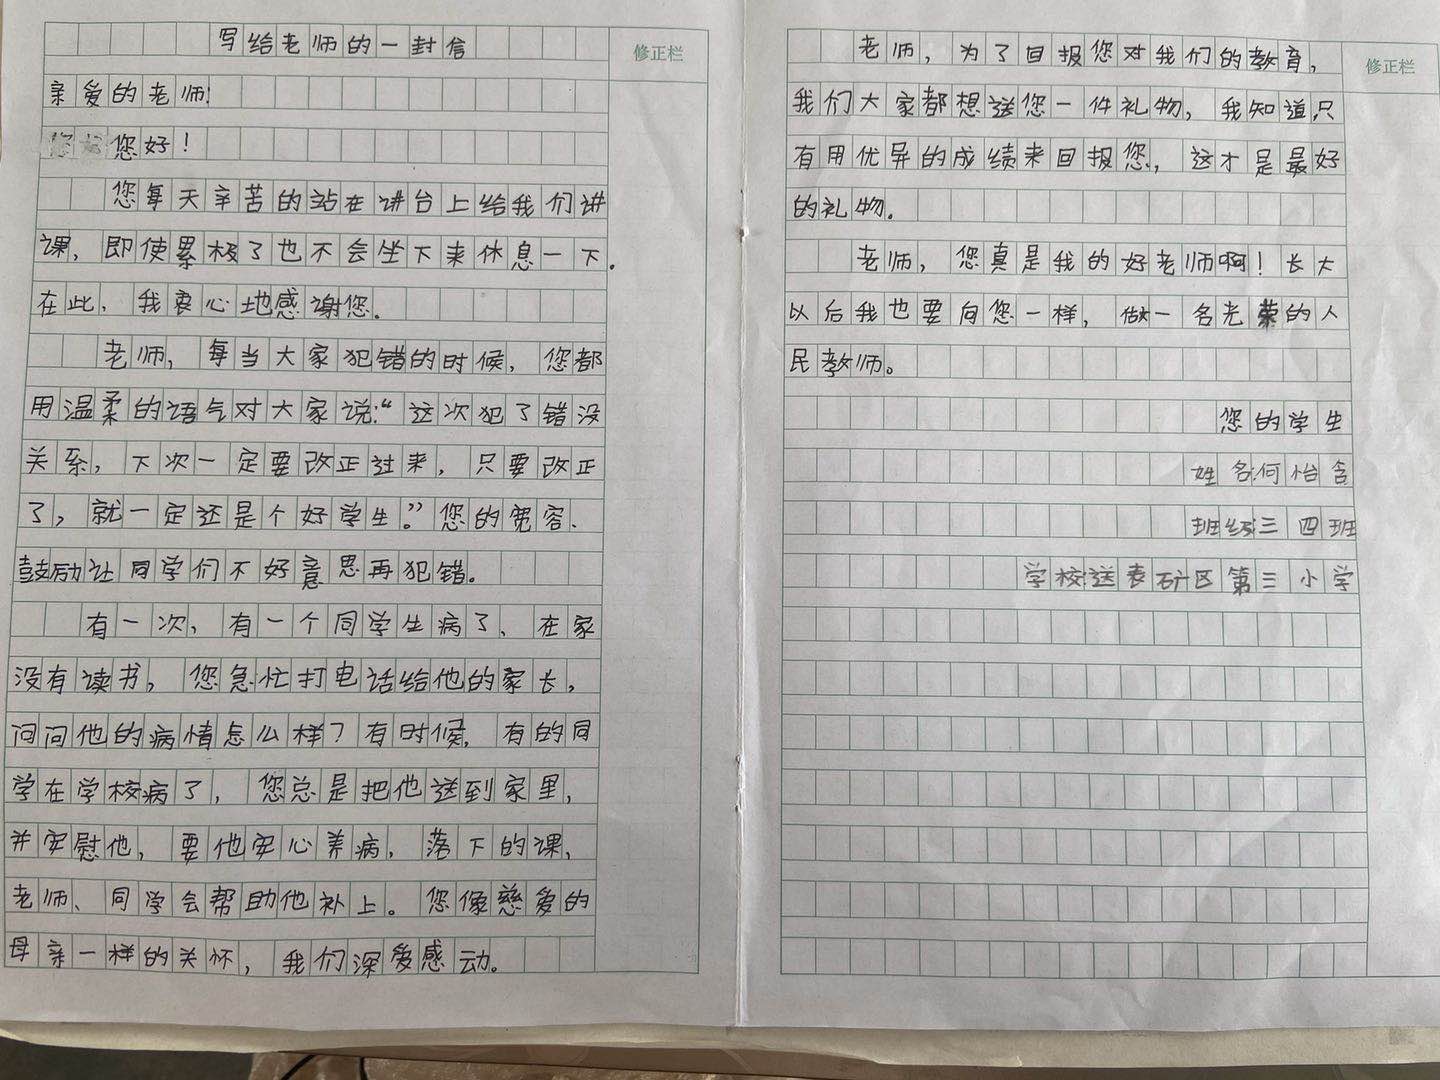 写给老师的一封信
修正栏
亲爱的老师:
您好!
您每天辛苦的站在讲台上给我们讲
课，即使累极了也不会坐下来休息一下.
在此，我衷心地感谢您.
老师，每当大家犯错的时候，您都
用温柔的语气对大家说:“这次犯了错没
关系，下次一定要改正过来，只要改正
了，就一定还是个好学生。”您的宽容、
鼓励让同学们不好意思再犯错。
有一次，有一个同学生病了、在家
没有读书，您急忙打电话给他的家长，
问问他的病情怎么样?有时候，有的同
学在学校病了，您总是把他送到家里，
并安慰他，要他安心养病，落下的课，
老师、同学会帮助他补上。您像慈爱的
母亲一样的关怀，我们深爱感动。
老师，为了回报您对我们的教育，
修正栏
我们大家都想送您一件礼物，我知道只
有用优异的成绩来回报您，这才是最好
的礼物.
老师，您真是我的好老师啊!长大
以后我也要向您一样，做一名光荣的人
民教师。
您的学生
姓名:何怡含
班级:三四班
学校:送表矿区第三小学